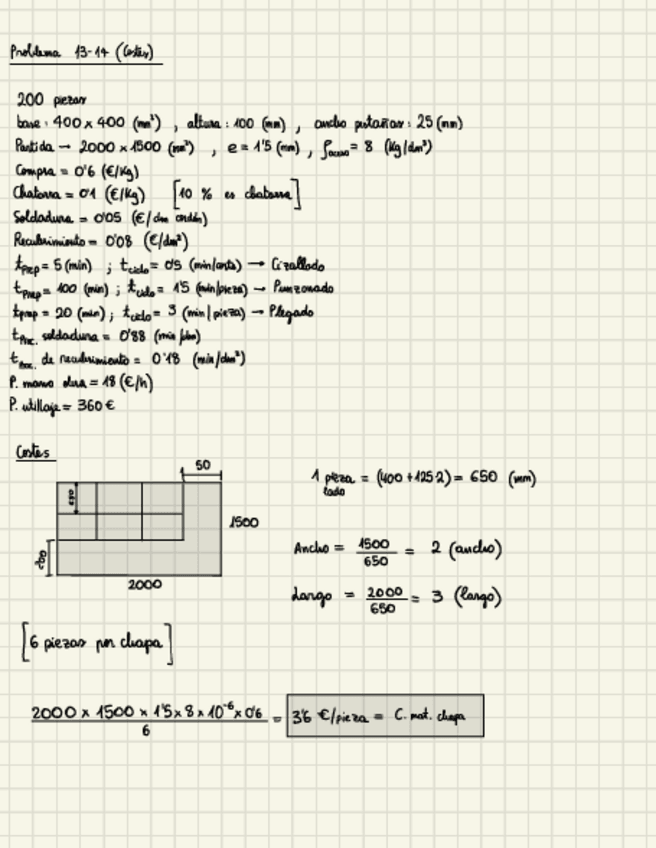 Problema 13-14 (Costes)
200 piezas
base: 400 x 400 (mm²) , altura: 100 (mm) , ancho pestañas: 25 (mm)
Partida → 2000 x 1500 (mm²) , e = 1'5 (mm) , ρacero = 8 (Kg/dm³)
Compra = 0'6 (€/Kg)
Chatarra = 0'1 (€/Kg) [10 % es chatarra]
Soldadura = 0'05 (€/dm cordón)
Recubrimiento = 0'08 (€/dm²)
tprep = 5 (min) ; tciclo = 0'5 (min/corte) → Cizallado
tprep = 100 (min) ; tciclo = 1'5 (min/pieza) → Punzonado
tprep = 20 (min) ; tciclo = 3 (min/pieza) → Plegado
tproc. soldadura = 0'88 (min/dm)
tproc. de recubrimiento = 0'18 (min/dm²)
P. mano obra = 18 (€/h)
P. utillaje = 360 €
Costes
50
650
1500
200
2000
1 pieza = (400 + 125·2) = 650 (mm)
lado
Ancho = 1500/650 = 2 (ancho)
Largo = 2000/650 = 3 (largo)
[6 piezas por chapa]
2000 x 1500 x 1'5 x 8 x 10⁻⁶ x 0'6 / 6 = 3'6 €/pieza = C. mat. chapa